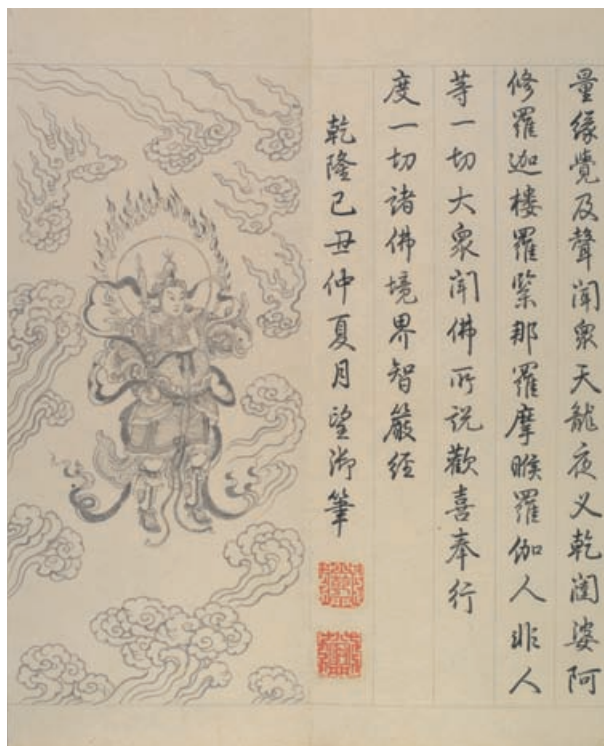 量緣覺及聲聞衆天龍夜乂乾闥婆阿
修羅迦樓羅緊那羅摩睺羅伽人非人
等一切大衆聞佛所説歡喜奉行
度一切諸佛境界智嚴経
乾隆己丑仲夏月望御筆